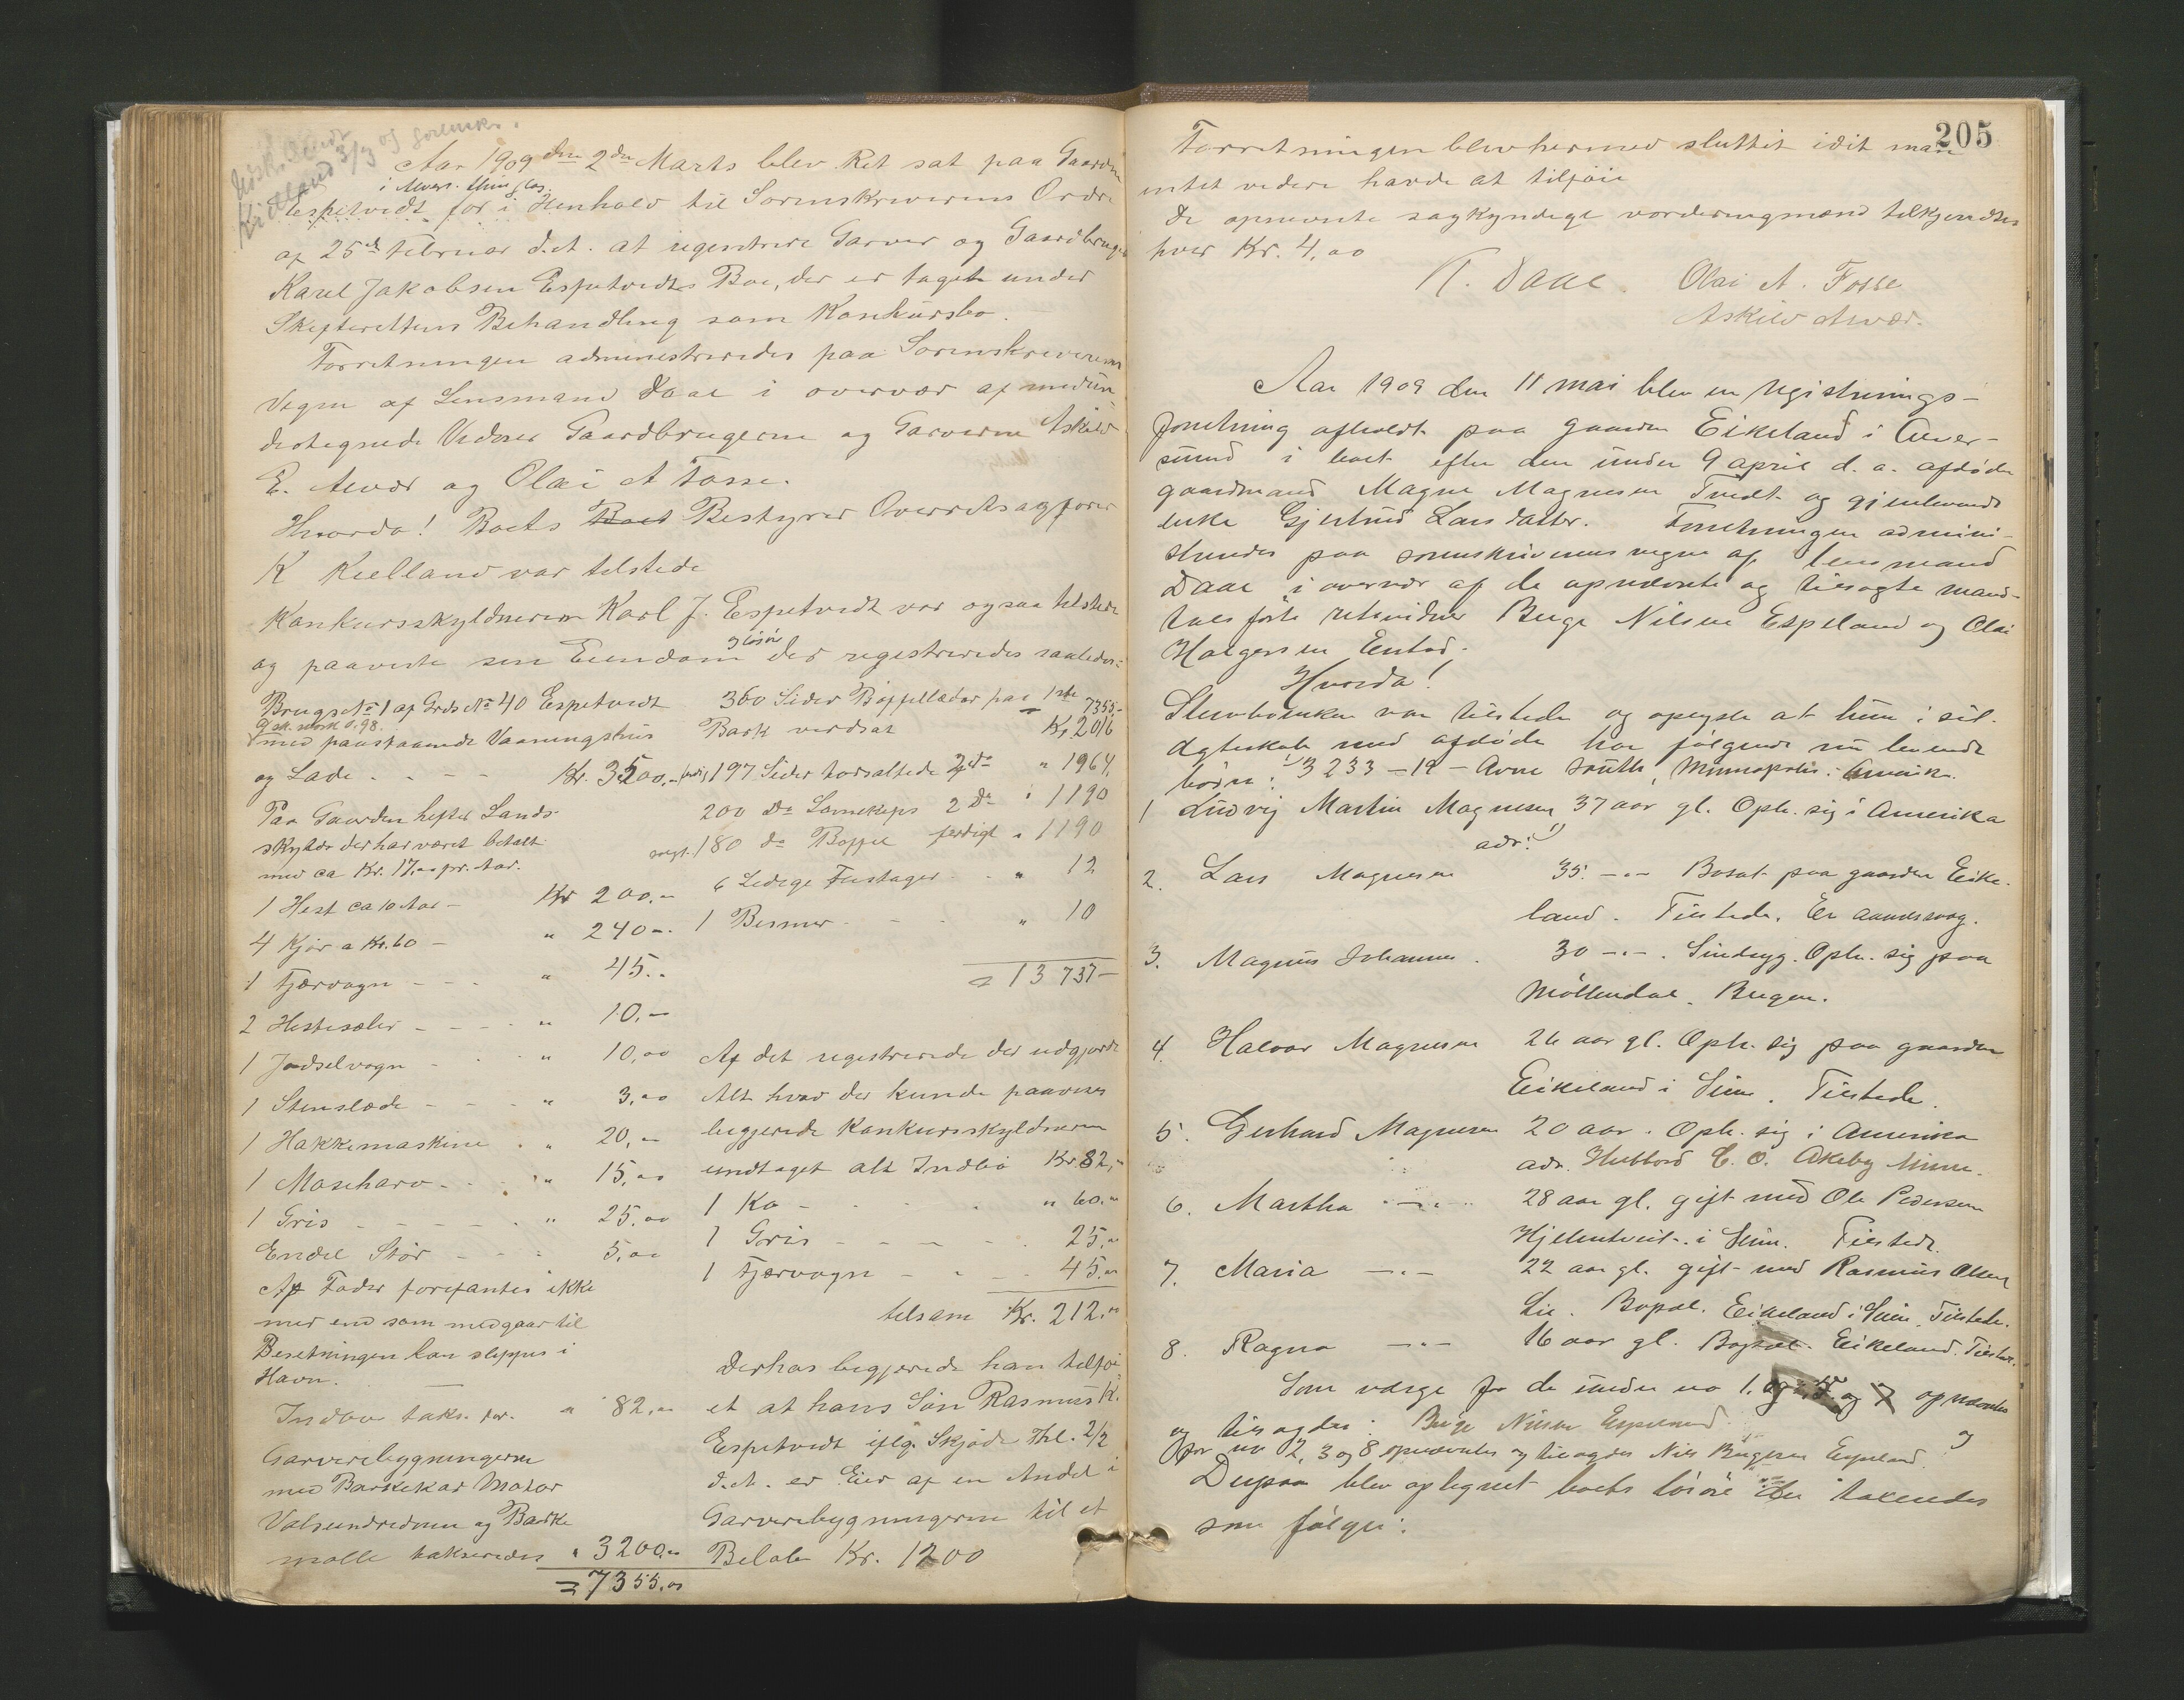 Udsk. sendt
Kielland 3/3 og
Aar 1909 den 2den Marts blev Ret sat paa Gaarden
i Alvers. thinglag
Espetvedt for i Henhold til Sorenskriverens Ordre
af 25de Februar d.A. at registrere Garver og Gaardbruger
Karel Jakobsen Espetvedts Boe, der er taget under
Skifterettens Behandling som Konkursbo.
Forretningen administreredes paa Sorenskriverens
Vegne af Lensmand Daae i overvær af medun-
dertegnede Vidner Gaardbrugerne og Garverne Askild
E. Alvær og Olai A Fosse.
Hvorda! Boets Boet Bestyrer Overretsagfører
K Kielland var tilstede
Konkursskyldneren Karl J. Espetvedt var ogsaa tilstede
og løsøre
og paaviste sin Eiendom der registreredes saaledes:
Brugs No 1 af Grds No 40 Espetvedt
Gsk. mark 0,98.
med paastaaende Vaaningshus
og Lade . . - - Kr. 3500,-
Paa Gaarden hefter Lands-
skyld der har været betalt
med ca Kr. 17,00 pr. Aar.
1 Hest ca 10 Aar - Kr 200.-
4 Kjør a Kr. 60 - " 240-.
1 Fjærvogn - - . " 45..
2 Hestesæler - - - " 10,-
1 Jødselvogn - . " 10,00
1 Stenslæde - - - " 3,00
1 Hakkemaskine . " 20,-
1 Maseharv - . " 15,00
1 Gris - - - - . " 25,00
Endel Stør - - . 5,00
Af Foder forefantes ikke
mer end som medgaar til
Besetningen kan slippes i
Havn.
Indbo taks. for. " 82,00
Garveribygningerne
med Barkekar Motor
og Barke
mølle takseredes " 3200,00
= 7355,00
360 Sider Bøffellæder paa 1ste 7355-
Bark verdsat Kr 2016
197 Sider torsaltede 2 do " 1964,
200 do 2 do " 1190
180 do Bøffel færdigt " 1190
6 Ledige Fustager . . " 12
1 Bismer - - - . " 10
= 13 737-
Af det registrerede der udgjorde
Alt hvad der kunde paavises
begjerede Konkursskyldneren
undtaget alt Indbo Kr. 82,-
1 Ko - . . . " 60.-
1 Gris - - - - . 25,-
1 Fjærvogn - - - - 45,00
tilsam Kr. 212,00
Derhos begjerede han tilføi-
et at hans Søn Rasmus K.
Espetvedt iflg. Skjøde Thl. 2/2
d.A. er Eier af en Andel i
Garveribygningerne til et
Beløb Kr. 1200
205
Forretningen blev hermed sluttet idet man
intet videre havde at tilføie
De opnævnte sagkyndige vorderingsmænd tilkjendtes
hver Kr. 4,00
K. Daae. Olai A. Fosse
Askild Alvær.
Aar 1909 den 11 mai blev en registrerings-
forretning afholdt paa gaarden Eikeland i Alver-
sund i boet efter den under 9 april d. a. afdøde
gaardmand Magne Magnesen Tvedt og gjenlevende
enke Gjertrud Larsdatter. Forretningen admini-
streredes paa sorenskriverens vegne af lensmand
Daae i overvær af de opnævnte og tilsagte mand-
talsførte retsvidner Berge Nilsen Espeland og Olai
Halgersen
Hvorda!
Stervboenken var tilstede og oplyste at hun i sit
Ægteskab med afdøde har følgende nu levende
børn: 1) 3233-19- Avne South, Minneapolis. Amerika.
1 Ludvig Martin Magnesen 37 aar gl. Oph. sig i Amerika
adr: 1)
2. Lars Magnesen 35. -"- Bosat paa gaarden Eike-
land. Tilstede. Er aandssvag.
3. Magnus Johannes . 30 -"-. Sindsyg. Oph. sig paa
Møllendal. Bergen.
4. Halvor Magnesen 26 aar gl. Oph. sig paa gaarden
Eikeland i Seim. Tilstede.
5. Gerhard Magnesen 20 aar. Oph. sig i Amerika
adr. Hubbord C. O. Akeby Minn.
6. Martha -"- 28 aar gl. gift med Ole Pedersen
Hjelmtveit i Seim. Tilstede.
7. Maria -"- 22 aar gl. gift med Rasmus Olsen
Lie. Bopæl. Eikeland i Seim. Tilstede.
8. Ragna -"- 16 aar gl. Bopæl. Eikeland. Tilstede.
Som værge for de under no 1. og 5 og 7 opnævntes
og tilsagdes: Berge Nilsen Espeland. og
for no 2, 3 og 8 opnævntes og tilsagdes Nils Bergesen Espeland.
Derpaa blev optegnet boets løsøre der takseredes
som følger: